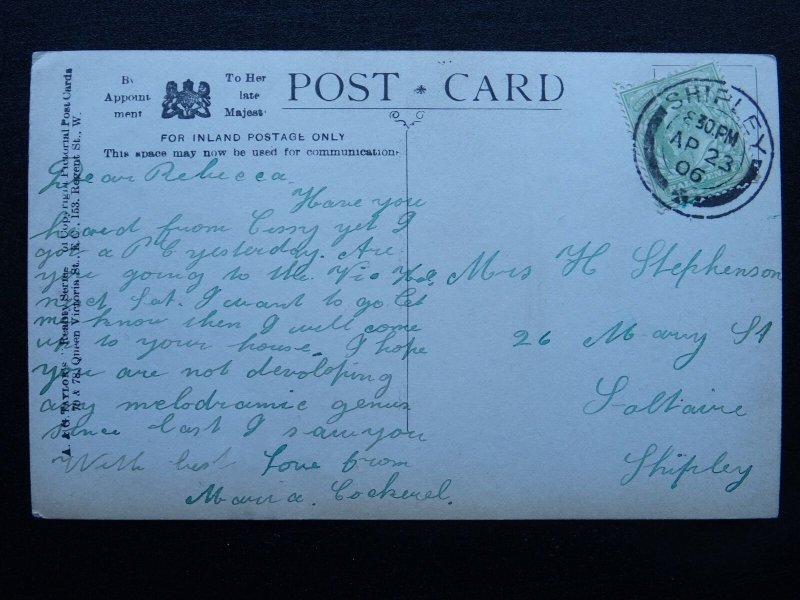 By Appointment
To Her late Majesty
POST CARD
FOR INLAND POSTAGE ONLY
This space may now be used for communication.
A. & G. TAYLOR'S "Reality Series" of Copyright Pictorial Post Cards
70 & 78, Queen Victoria St., E.C., 153, Regent St., W.
SHIPLEY
8 30 PM
AP 23
06
Dear Rebecca
Have you
heard from Cissy yet I
got a P C yesterday. Are
you going to the Vic Hall
next Sat. I want to go let
me know then I will come
up to your house. I hope
you are not devoloping
any melodramic genius
since last I saw you
With best love from
Maria. Cockerel.
Mrs H Stephenson
26 Mary St
Saltaire
Shipley